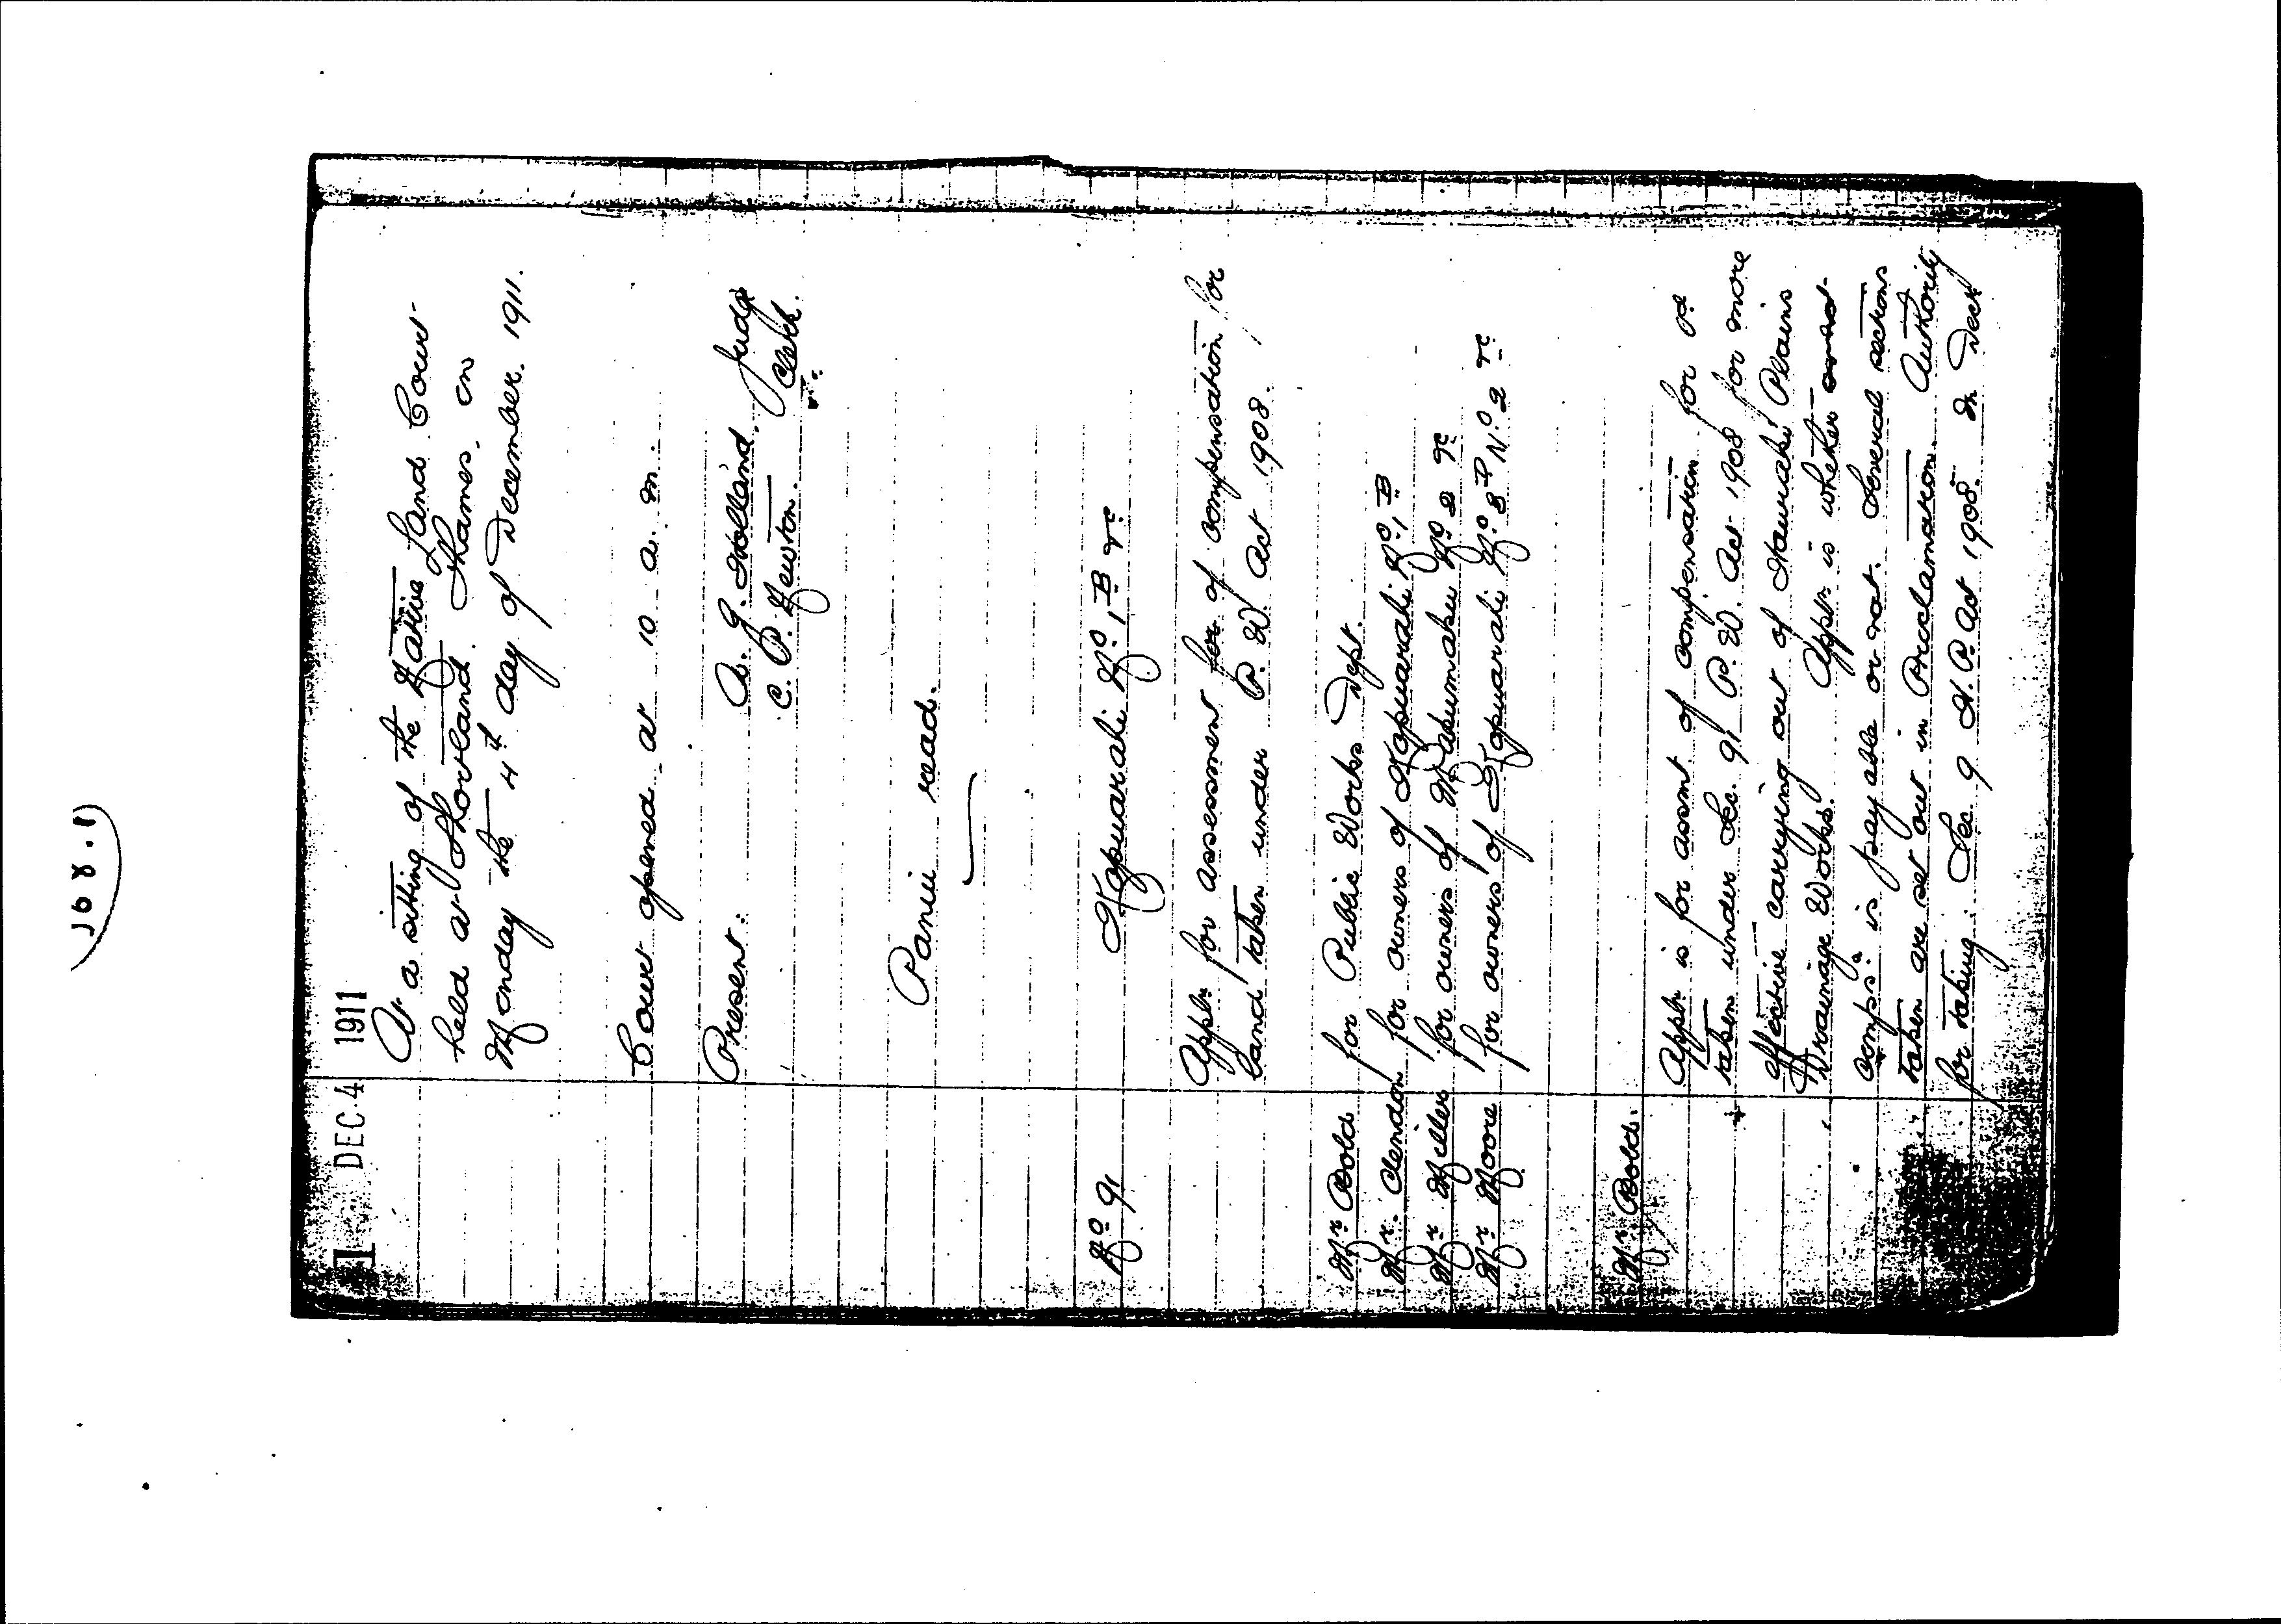 J68.1)
1 DEC 4 1911
At a sitting of the Native Land Court
held at Shortland. Thames, on
Monday the 4th day of December. 1911.
Court opened at 10 a.m.
Present: A. G. Holland. Judge
C. P. Newton. Clerk.
Panui read.
No 91 Kopuarahi No 1 B &c
Appn for assessment for of compensation for
land taken under P. W. Act 1908.
Mr Bold for Public Works Dept.
Mr. Clendon for owners of Kopuarahi No 1 B
Mr Miller for owners of No 2 &c
Mr Moore for owners of Kopuarahi No 8 D No 2 &c
Mr. Bold.
Appn is for assmt of compensation for
taken under Sec. 91 P. W. Act 1908 for more
effective carrying out of Hauraki Plains
Drainage Works. Appn is whether
compsn is payable or not. Several sections
taken are set out in Proclamation. Authority
for taking: Sec 9 H. P. Act 1908. In